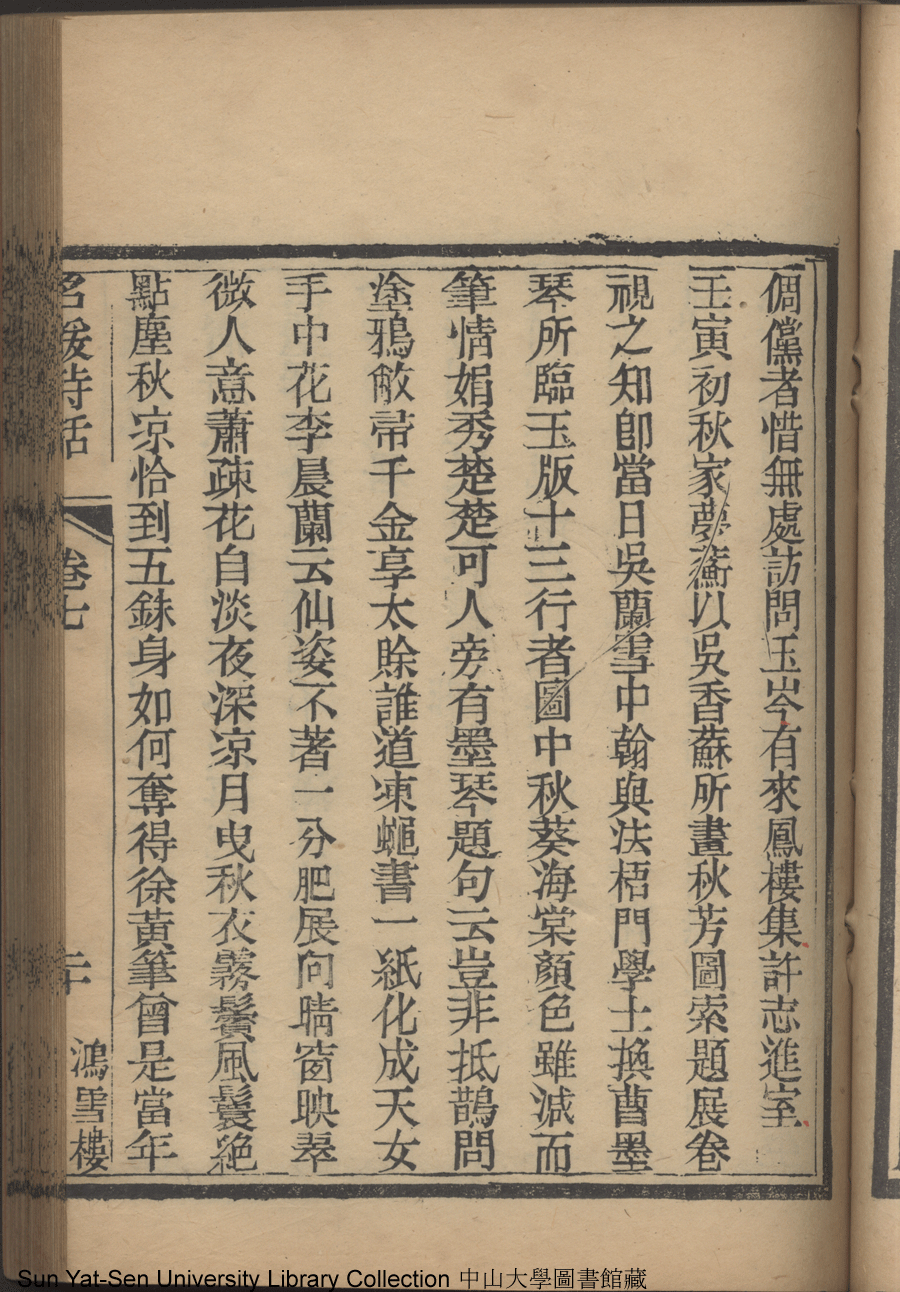 倜儻者惜無處訪問玉岑有來鳳樓集許志進室
壬寅初秋家夢蘅以吳香蘇所畫秋芳圖索題展卷
視之知卽當日吳蘭雪中翰與法梧門學士換曹墨
琴所臨玉版十三行者圖中秋葵海棠顏色雖減而
筆情娟秀楚楚可人旁有墨琴題句云豈非抵鵲問
塗鴉敝帚千金享太賒誰道凍蠅書一紙化成天女
手中花李晨蘭云仙姿不著一分肥展向晴窗映翠
微人意蕭疎花自淡夜深凉月曳秋衣霧鬢風鬟絕
點塵秋凉恰到五銖身如何奪得徐黃筆曾是當年
名媛詩話 卷七 二十 鴻雪樓
Sun Yat-Sen University Library Collection 中山大學圖書館藏